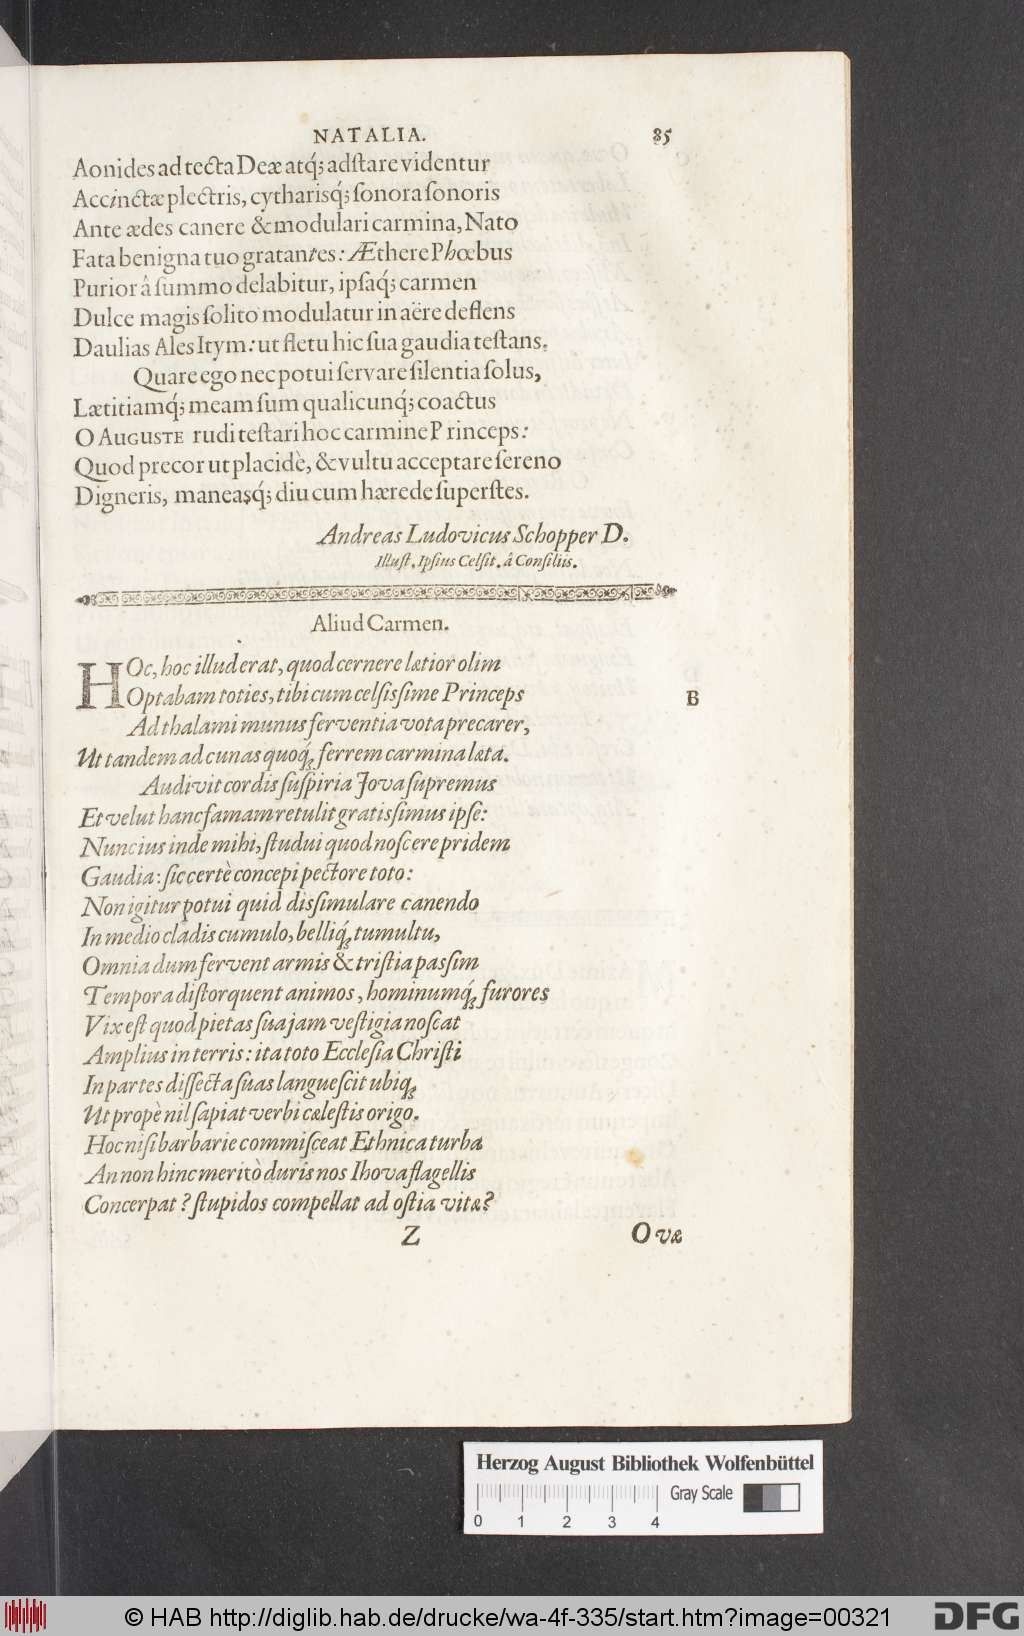 NATALIA. 85
Aonides ad tecta Deæ atq́; adſtare videntur
Accinctæ plectris, cytharisq́; ſonora ſonoris
Ante ædes canere & modulari carmina, Nato
Fata benigna tuo gratantes: Æthere Phœbus
Purior â ſummo delabitur, ipſaq́; carmen
Dulce magis ſolito modulatur in aëre deflens
Daulias Ales Itym: ut fletu hic ſua gaudia teſtans.
Quare ego nec potui ſervare ſilentia ſolus,
Lætitiamq́; meam ſum qualicunq́; coactus
O AUGUSTE rudi teſtari hoc carmine Princeps:
Quod precor ut placidè, & vultu acceptare ſereno
Digneris, maneasq́; diu cum hærede ſuperſtes.
Andreas Ludovicus Schopper D.
Illuſt. Ipſius Celſit. â Conſiliis.
Aliud Carmen.
HOc, hoc illud erat, quod cernere lætior olim
Optabam toties, tibi cum celſisſime Princeps
B
Ad thalami munus ferventia vota precarer,
Ut tandem ad cunas quoq́; ferrem carmina læta.
Audivit cordis ſuſpiria Jova ſupremus
Et velut hanc famam retulit gratisſimus ipſe:
Nuncius inde mihi, ſtudui quod noſcere pridem
Gaudia: ſic certè concepi pectore toto:
Non igitur potui quid disſimulare canendo
In medio cladis cumulo, belliq́; tumultu,
Omnia dum fervent armis & triſtia pasſim
Tempora diſtorquent animos, hominumq́; furores
Vix eſt quod pietas ſua jam veſtigia noſcat
Amplius in terris: ita toto Eccleſia Chriſti
In partes diſſecta ſuas langueſcit ubiq;
Ut propè nil ſapiat verbi cæleſtis origo.
Hoc niſi barbarie commiſceat Ethnica turba
An non hinc meritò duris nos Ihova flagellis
Concerpat? ſtupidos compellat ad oſtia vitæ?
Z O væ
Herzog August Bibliothek Wolfenbüttel
Gray Scale
0 1 2 3 4
© HAB http://diglib.hab.de/drucke/wa-4f-335/start.htm?image=00321 DFG